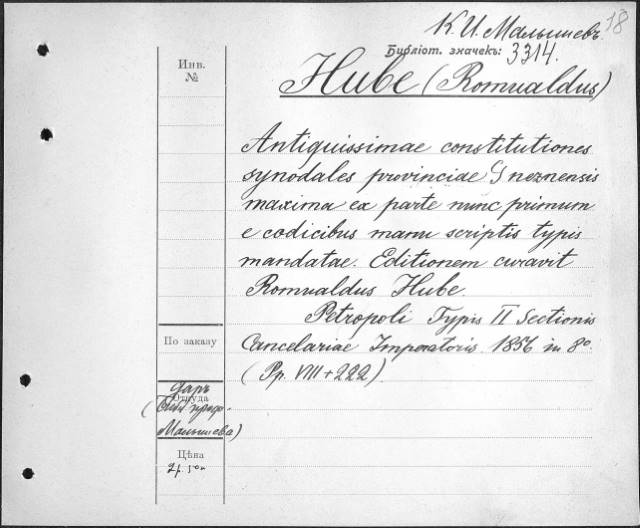 18
К. И. Малышевъ
Библіот. значекъ: 3314.
Инв.
№
Hube (Romualdus)
Antiquissimae constitutiones
synodales provinciae Gneznensis
maxima ex parte nunc primum
e codicibus manu scriptis typis
mandatae. Editionem curavit
Romualdus Hube.
Petropoli Typis II Sectionis
Cancelariae Imperatoris. 1856 in 8º.
(Pp. VIII + 222)
По заказу
даръ
Откуда
Малышева)
Цѣна